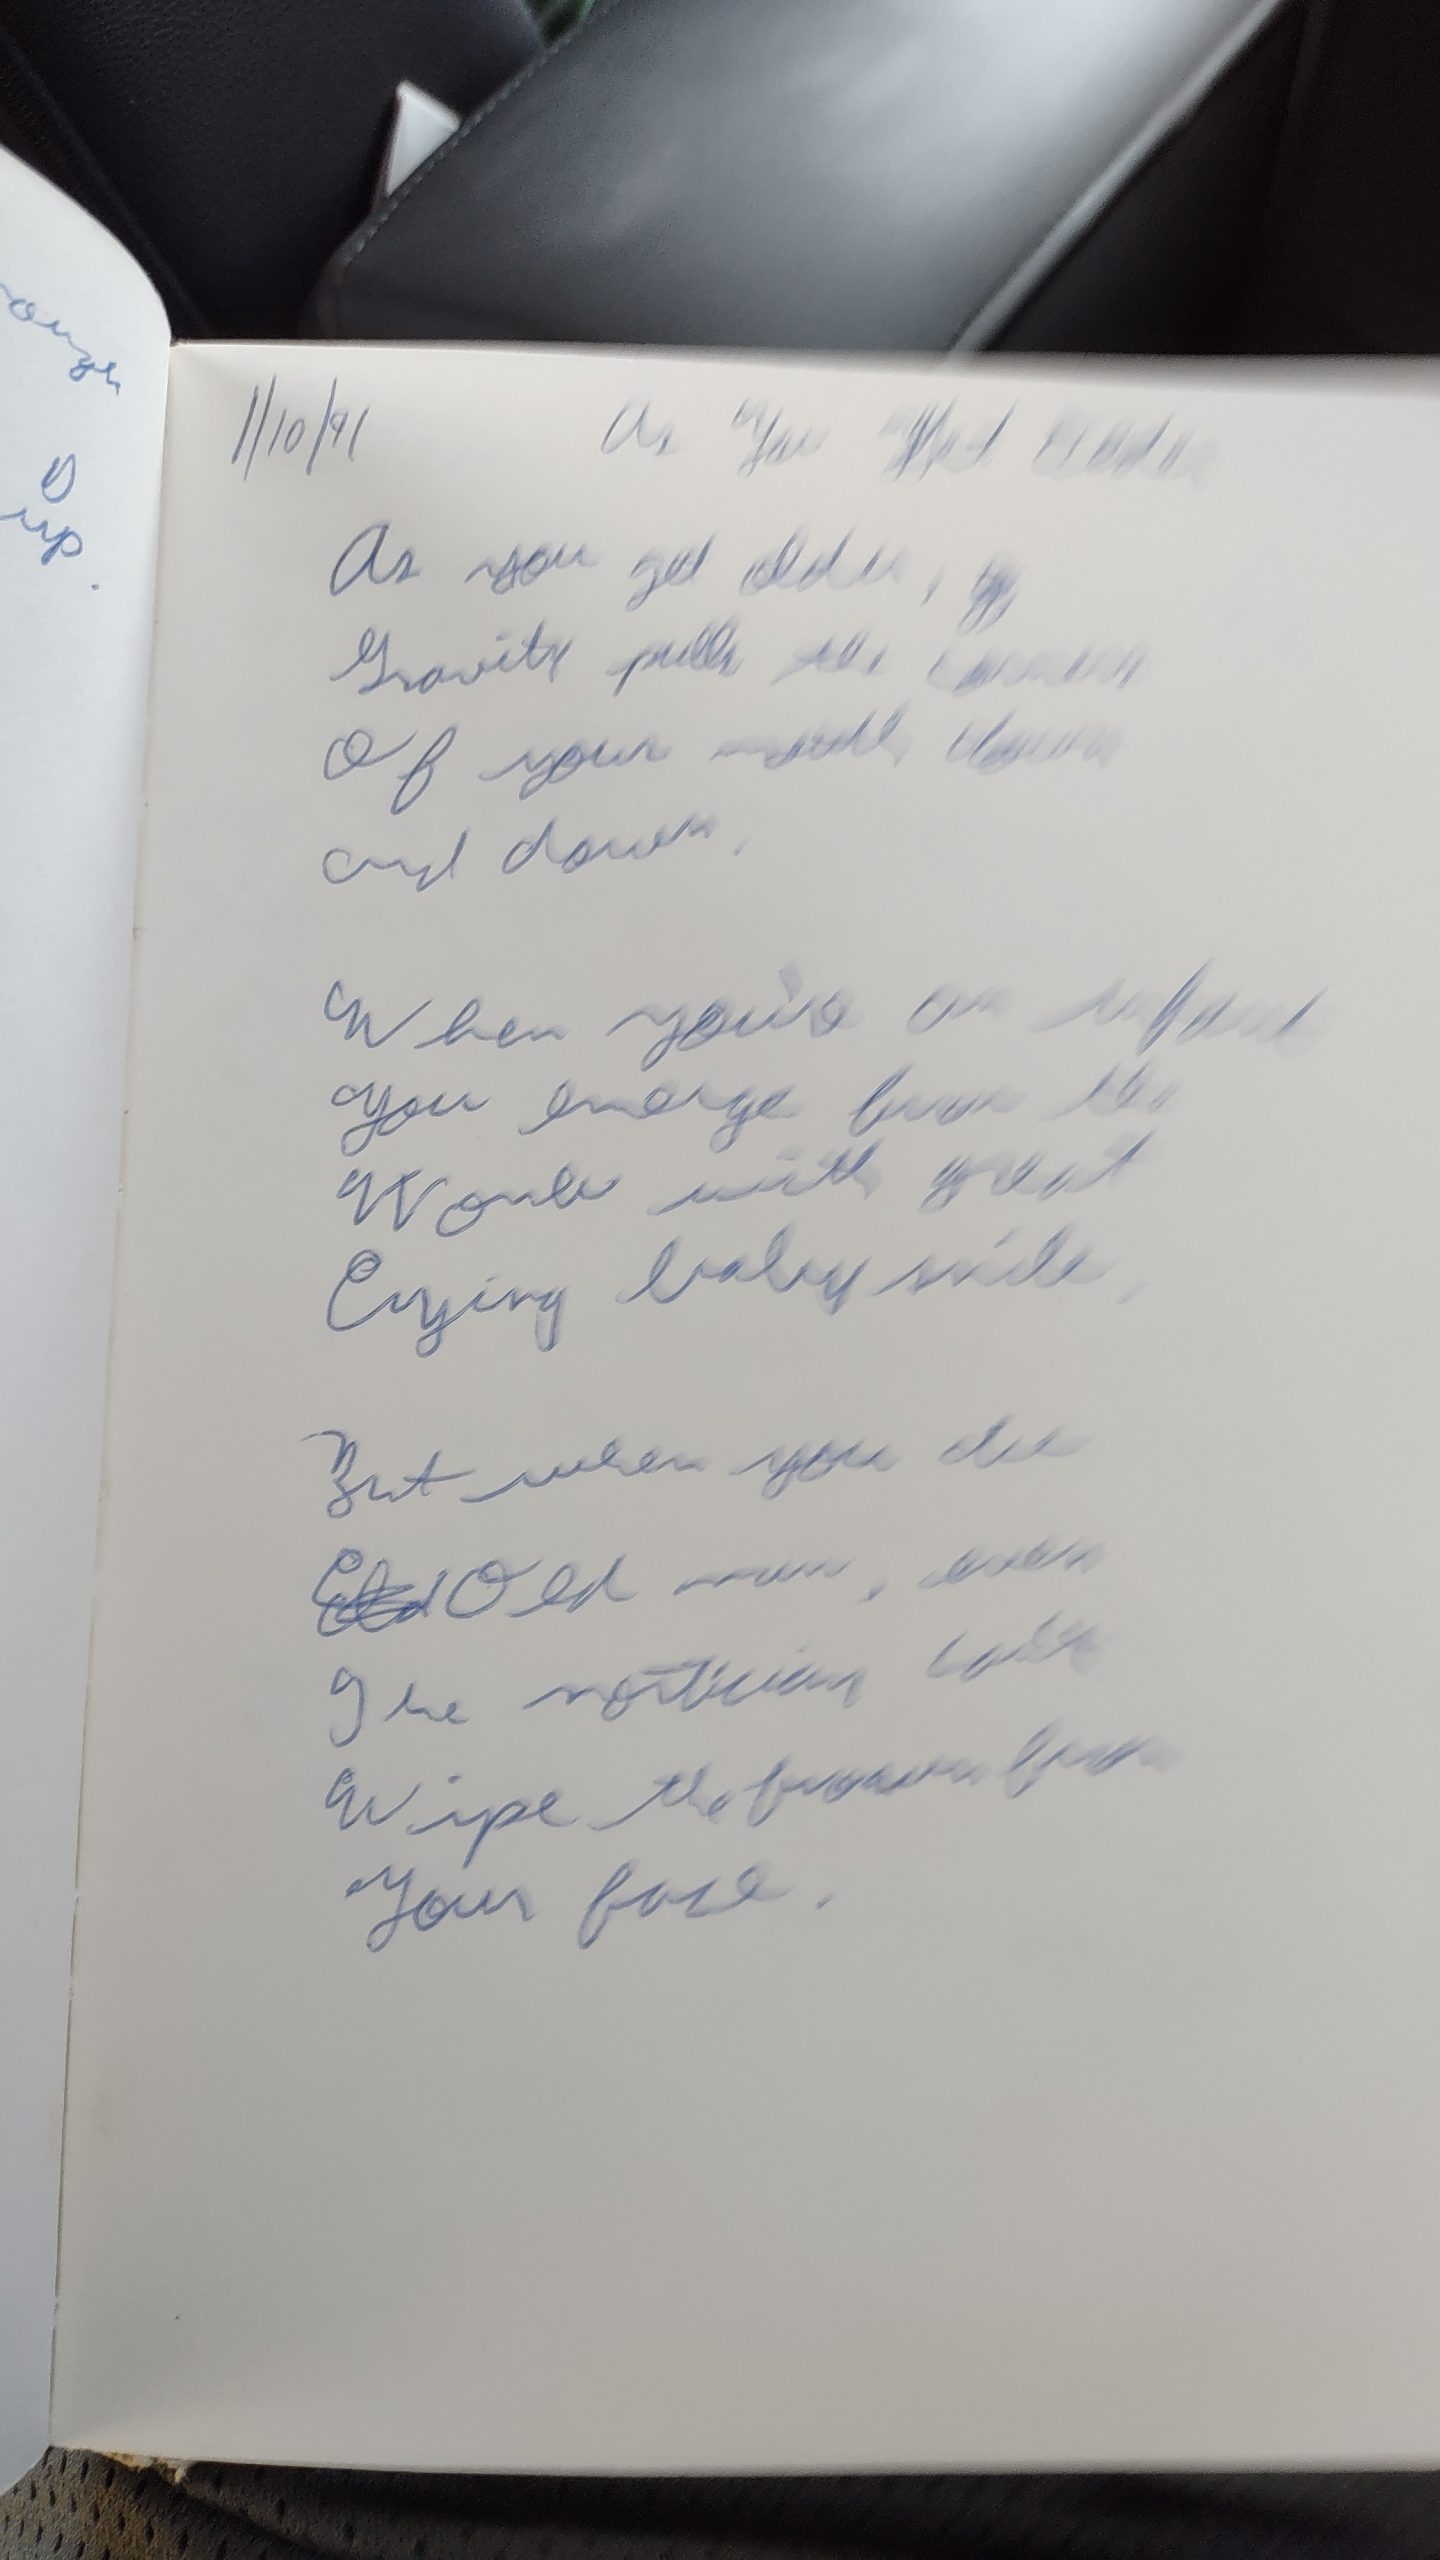 up.
1/10/91 As You Get Older
As you get older,
Gravity pulls the corners
Of your mouth down
and down.
When you're an infant
You emerge from the
Womb with great
Crying baby smile,
But when you die
Old man, even
The mortician can't
Wipe the frown from
Your face.